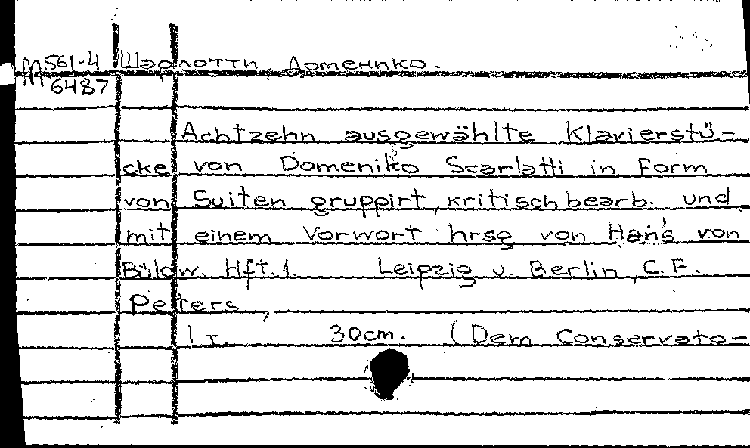 М 561-4 Шарлотти, Доменико.
6487
Achtzehn ausgewählte Klavierstü-
cke von Domeniko Scarlatti in Form
von Suiten gruppirt, kritisch bearb. und
mit einem Vorwort hrsg von Hans von
Bülow. Hft. 1. Leipzig u. Berlin, C. F.
Peters,
1 т. 30cm. (Dem Conservato-